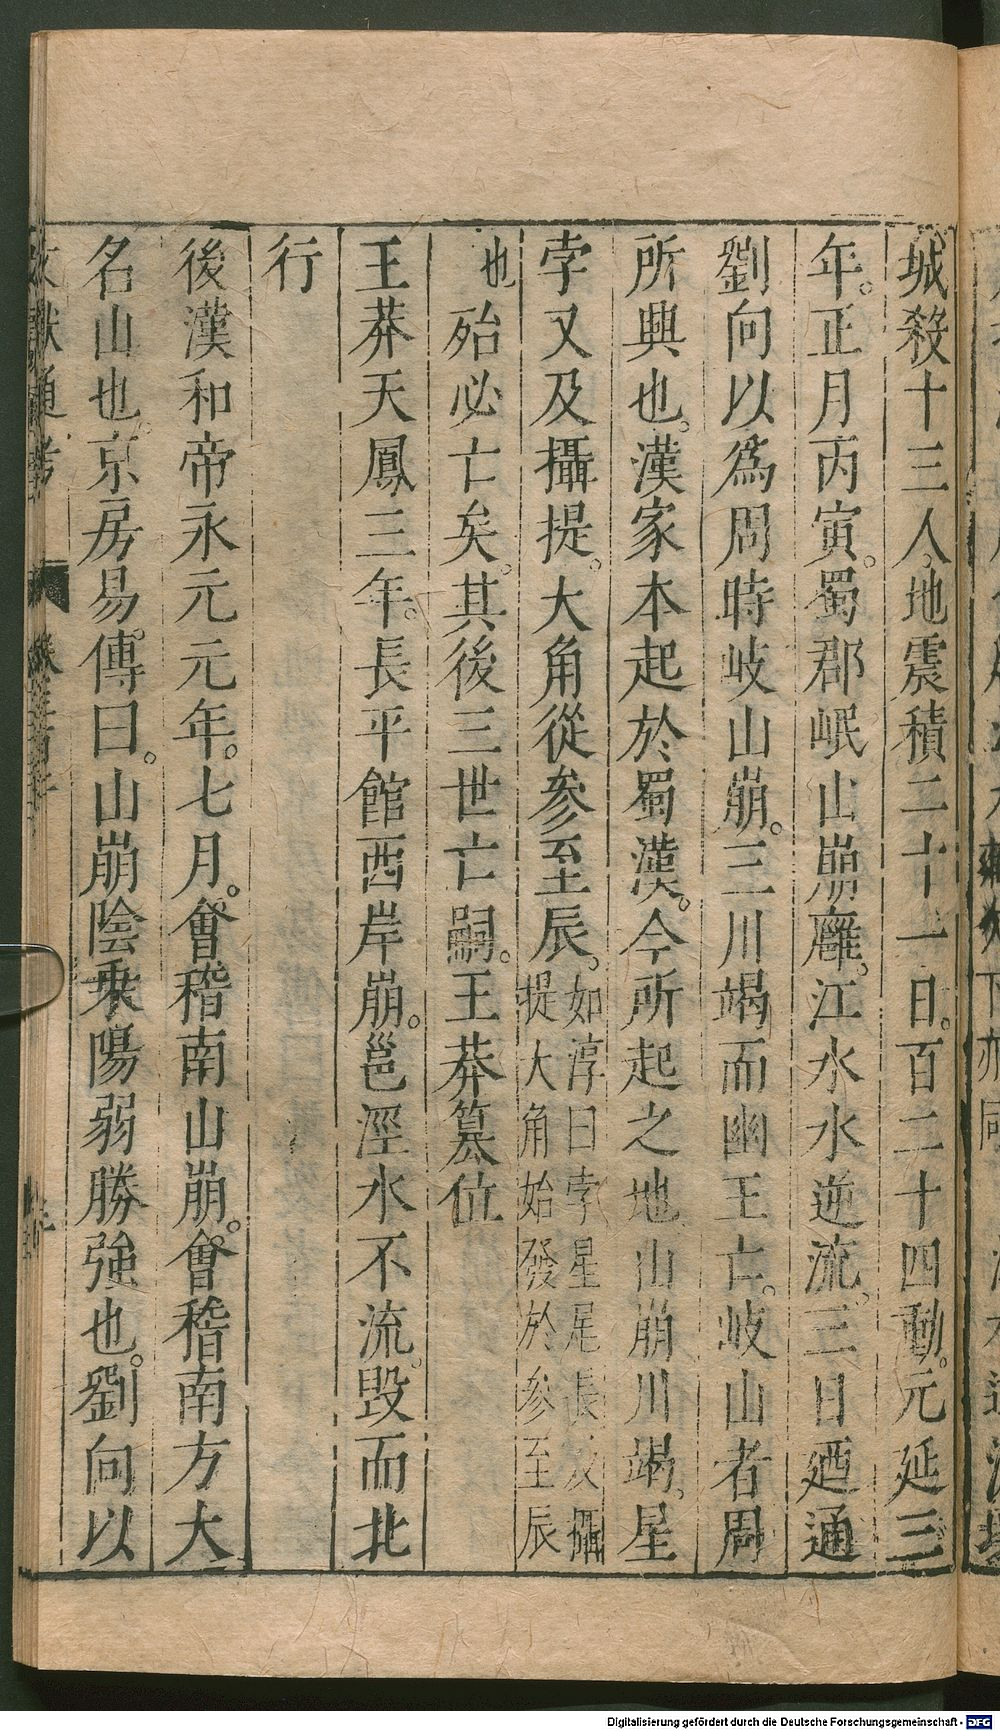 城殺十三人。地震積二十一日。百二十四動。元延三
年。正月丙寅。蜀郡岷山崩。廱江水水逆流。三日廼通
劉向以爲周時岐山崩。三川竭而幽王亡。岐山者周
所興也。漢家本起於蜀漢。今所起之地山崩川竭。星
孛又及攝提。大角從參至辰。如淳曰孛星尾長及攝
提大角始發於參至辰
也殆必亡矣。其後三世亡嗣。王莽簒位
王莽天鳳三年。長平館西岸崩。邕涇水不流。毀而北
行
後漢和帝永元元年。七月。會稽南山崩。會稽南方大
名山也。京房易傳曰。山崩陰乗陽弱勝強也。劉向以
文獻通考
Digitalisierung gefördert durch die Deutsche Forschungsgemeinschaft - DFG